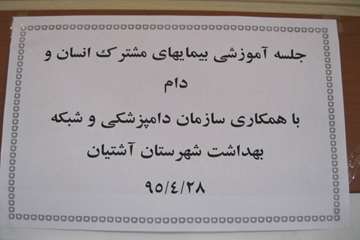 جلسه آموزشی بیمایهای مشترک انسان و
دام
با همکاری سازمان دامپزشکی و شبکه
بهداشت شهرستان آشتیان
۹۵/٤/۲۸